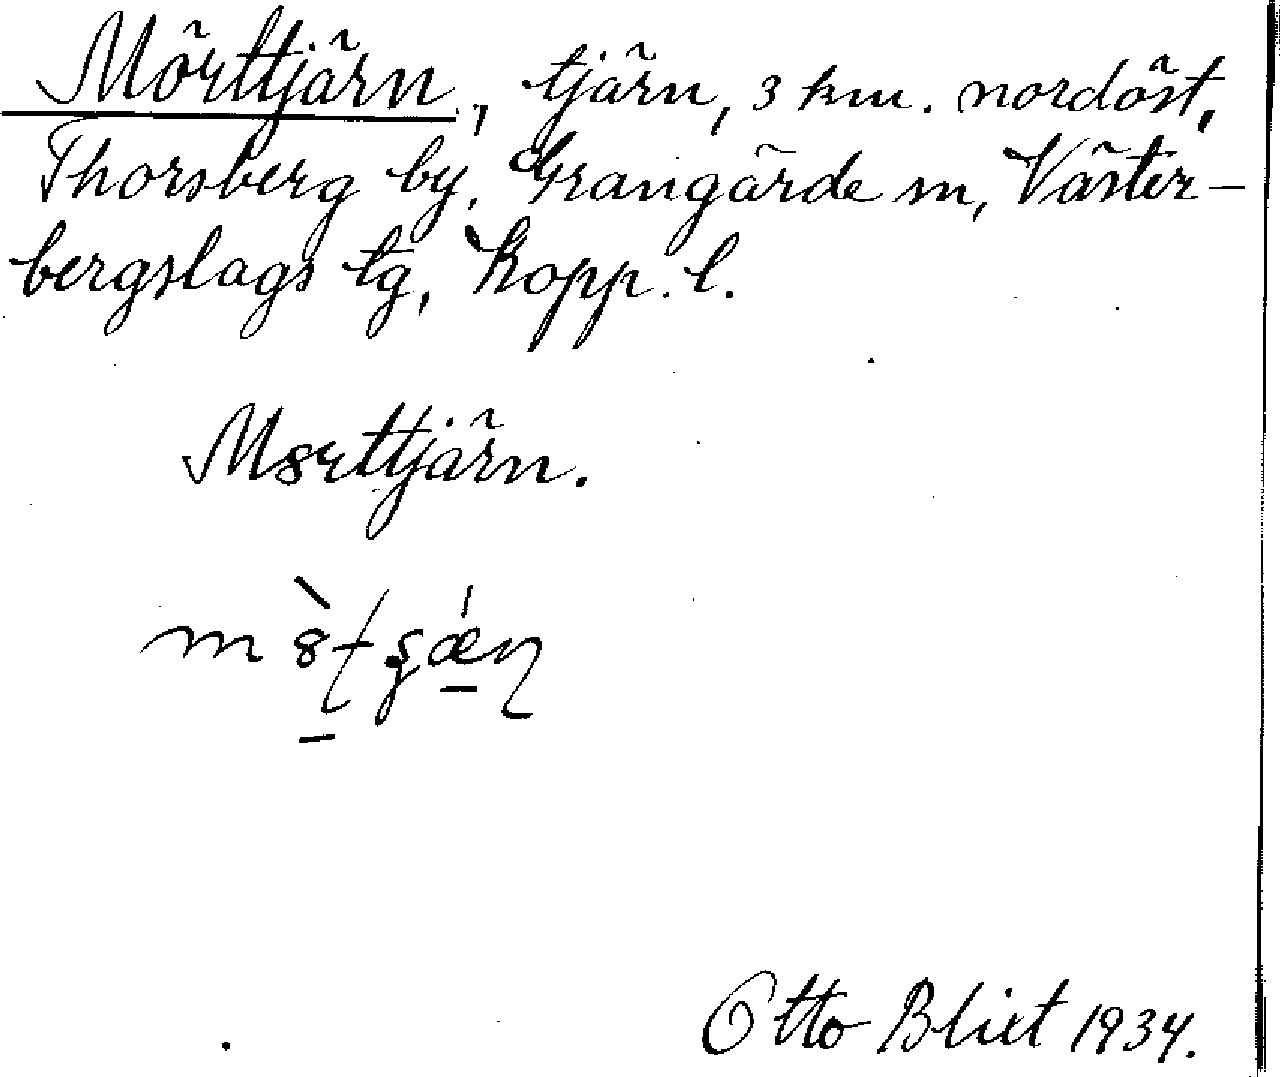 Mörttjärn, tjärn, 3 km. nordöst,
Thorsberg by, Grangärde sn, Väster-
bergslags tg, Kopp. l.
M8rttjärn.
Otto Blixt 1934.